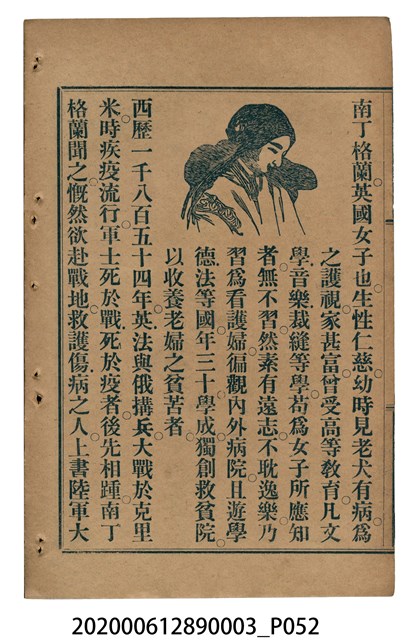 南丁格蘭英國女子也生性仁慈幼時見老犬有病爲
之護視家甚富曾受高等教育凡文
學音樂裁縫等學苟爲女子所應知
者無不習然素有遠志不耽逸樂乃
習爲看護婦徧觀內外病院且遊學
德法等國年三十學成獨創救貧院
以收養老婦之貧苦者
西歷一千八百五十四年英法與俄搆兵大戰於克里
米時疾疫流行軍士死於戰死於疫者後先相踵南丁
格蘭聞之慨然欲赴戰地救護傷病之人上書陸軍大
202000612890003_P052